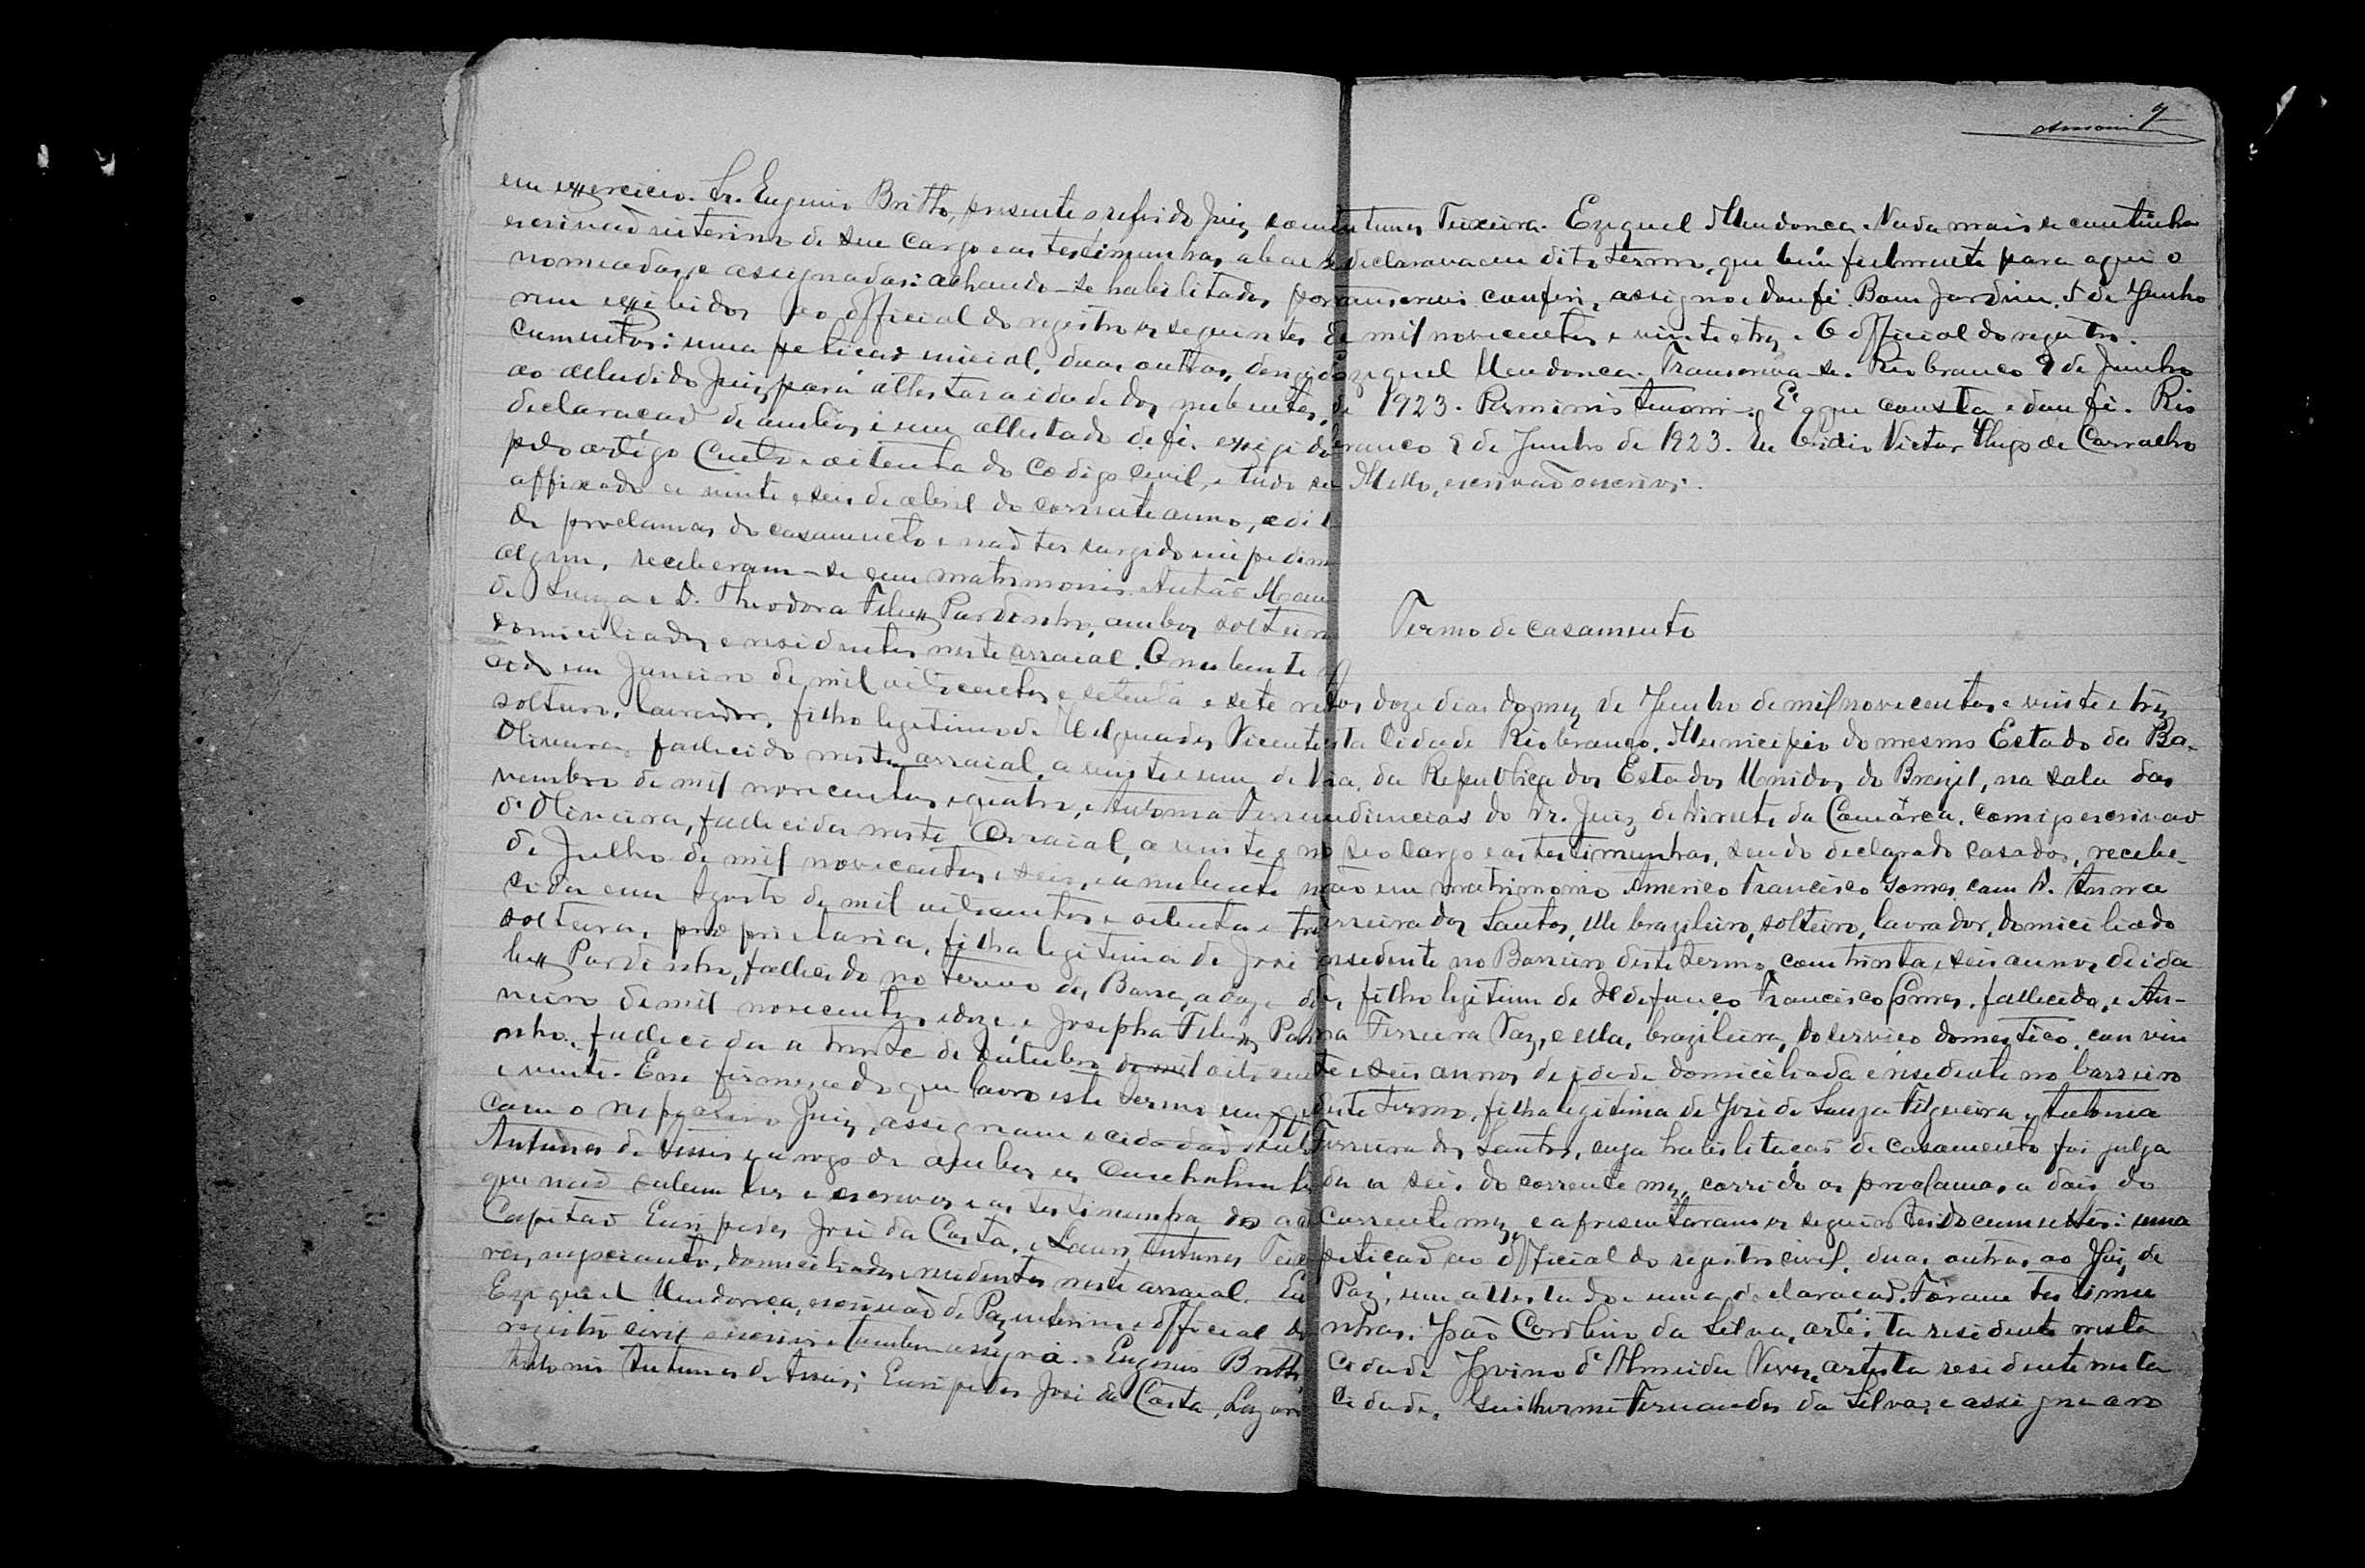 em exercicio. Sr. Eugenio Britto, presente o referido Juiz, com
escrivaõ interino de seu cargo e as testimunhas, abaixo
nomeadas e assignadas: achando-se habilitados, por
rem exhibidos ao official do registro os seguintes do
cumentos: uma peticaõ inicial, duas outras, dirigidas
ao alludido Juiz, para attestar a idade dos nubentes,
declaracaõ de ambos e um attestado de fé, exigido
pelo artigo Cento e oitenta do Codigo civil, e tudo sen
affixado a vinte e seis de abril do corrente anno, edit
de proclamas do casamento e naõ ter surgido impedim
algum, receberam-se em matrimonio Antaõ
de Souza e D. Theodora Pardinho, ambos solteiros
domiciliados e residentes neste arraial. O nubente
cido em Janeiro de mil oitocentos e setenta e sete
solteiro, lavrador, filho legitimo de Melquiades Vicente
Oliveira, fallecido neste arraial, a vinte e um de
vembro de mil novecentos e quatro, e Antonia
de Oliveira, fallecida neste Arraial, a vinte e
de Julho de mil novecentos e seis, e a nubente
cida em Agosto de mil oitocentos e oitenta e tres
solteira, proprietaria, filha legitima de José
Pardinho, fallecido no termo da Barra, a doze de
neiro de mil novecentos e doze, e Josepha
nho, fallecida a trinta de outubro de mil oitocentos
e vinte. Em firmeza do que lavro este termo em que
com o Juiz, assignam o cidadaõ
Antunes de Assis e a rogo de ambos os Conchahentes
que naõ sabem ler e escrever e as testimunhas
Capitaõ Euripedes José da Costa, e Antunes
ra, negociante, domiciliados e residentes neste arraial. Eu
Ezequiel Mendonca, escrivaõ de Paz interino e official do
registro civil o escrevi e tambem assigno. Eugenio Britto,
Antonio Antunes de Assis; Euripedes José da Costa,
9
Antunes Teixeira. Ezequiel Mendonca. Nada mais se continha
e declarava em dito termo, que bem fielmente para aqui o
transcrevi conferi, assigno e dou fé. Bom Jardim, 5 de Junho
de mil novecentos e vinte e tres. O official do registro.
Ezequiel Mendonca. Transcreva-se. Rio branco 9 de Junho
de 1923. É o que consta e dou fé. Rio
branco 9 de Junho de 1923. Eu Victor Hugo de Carvalho
Mello, escrivaõ o escrevi.
Termo de casamento
Aos doze dias do mez de Junho de mil novecentos e vinte e trez
nesta Cidade Rio branco, Municipio do mesmo Estado da Ba-
hia, da Republica dos Estados Unidos do Brazil, na sala das
audiencias do Dr. Juiz de direito da Comarca, comigo escrivaõ
no seo cargo e as testimunhas, sendo declarado casados, recebe-
raõ em matrimonio Americo Francisco Gomes com D. Anna
Ferreira dos Santos, elle brazileiro, solteiro, lavrador, domiciliado
e residente no Barreiro deste termo, com trinta e seis annos de ida
de, filho legitimo de Ildefonço Francisco Gomes, fallecido, e An-
na Ferreira Vaz, e ella, brazileira, do servico domestico, con vin
te e seis annos de idade domiciliada e residente no barreiro
deste termo, filha legitima de José de Souza Filgueira e Antonia
Ferreira dos Santos, cuja habilitaçaõ de casamento foi julga
da a seis do corrente mez, corrido os proclamas a dois do
corrente mez, e apresentaram os seguintes documentos: uma
peticaõ ao official do registro civil, duas outras ao Juiz de
Paz, um attestado e uma declaracaõ. Foram testimu
nhas: João Cordlino da Silva, artista residente nesta
cidade Jovino d'Almeida Neves, artista residente nesta
cidade, Guilherme Fernandes da Silva, e assignaro